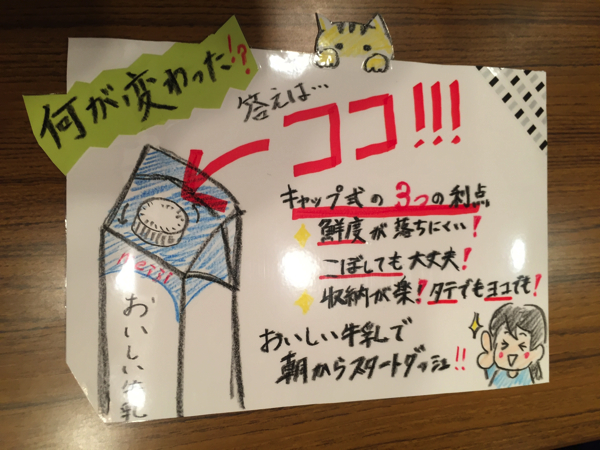 何が変わった!?
答えは…
ココ!!!
キャップ式の3つの利点
鮮度が落ちにくい!
こぼしても大丈夫!
収納が楽!タテでもヨコでも!
おいしい牛乳で
朝からスタートダッシュ!!
meiji
おいしい牛乳